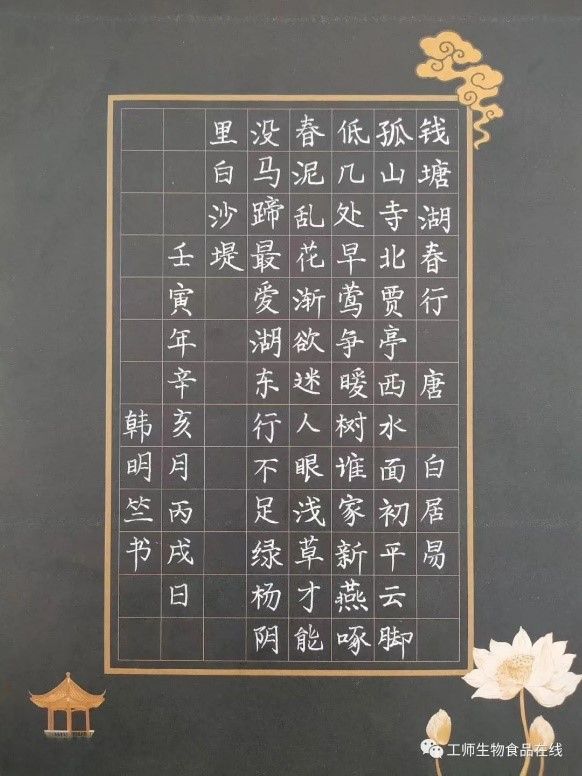 钱塘湖春行 唐 白居易
孤山寺北贾亭西水面初平云脚
低几处早莺争暖树谁家新燕啄
春泥乱花渐欲迷人眼浅草才能
没马蹄最爱湖东行不足绿杨阴
里白沙堤
壬寅年辛亥月丙戌日
韩明竺书
工师生物食品在线